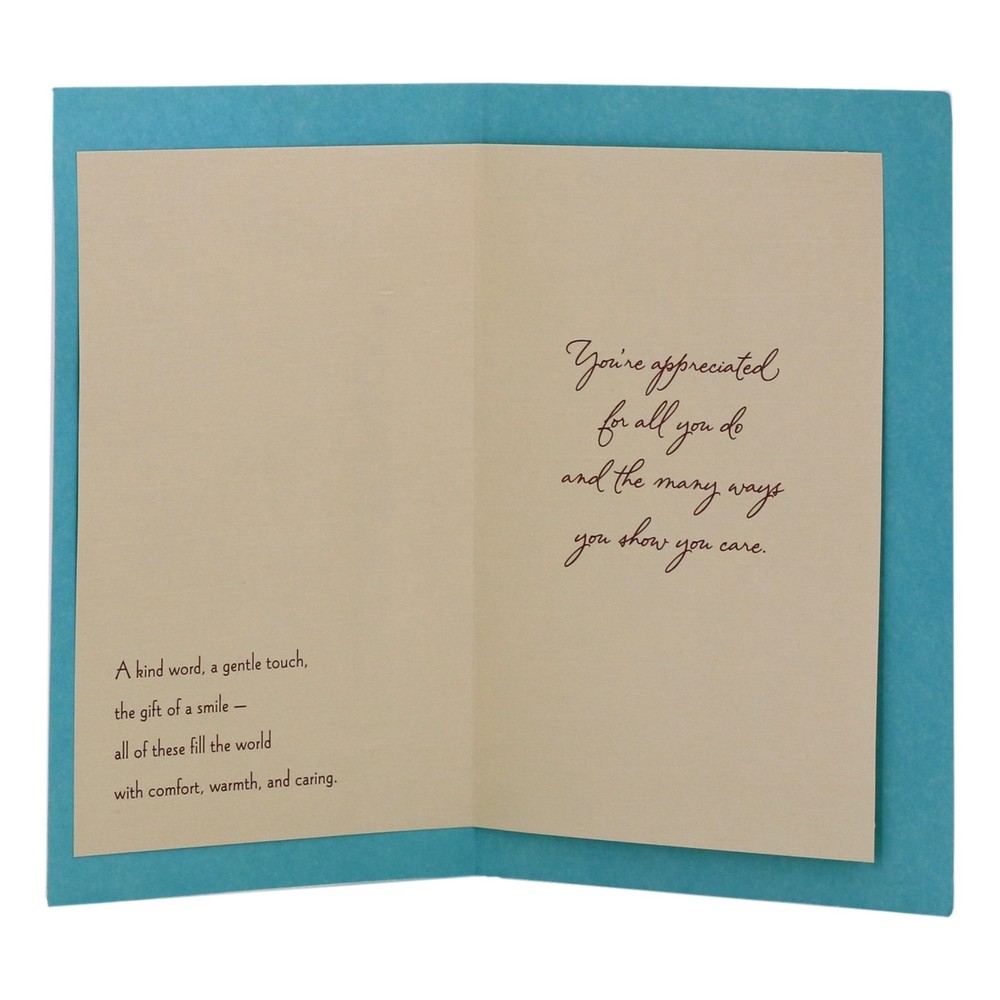 A kind word, a gentle touch,
the gift of a smile —
all of these fill the world
with comfort, warmth, and caring.
You're appreciated
for all you do
and the many ways
you show you care.